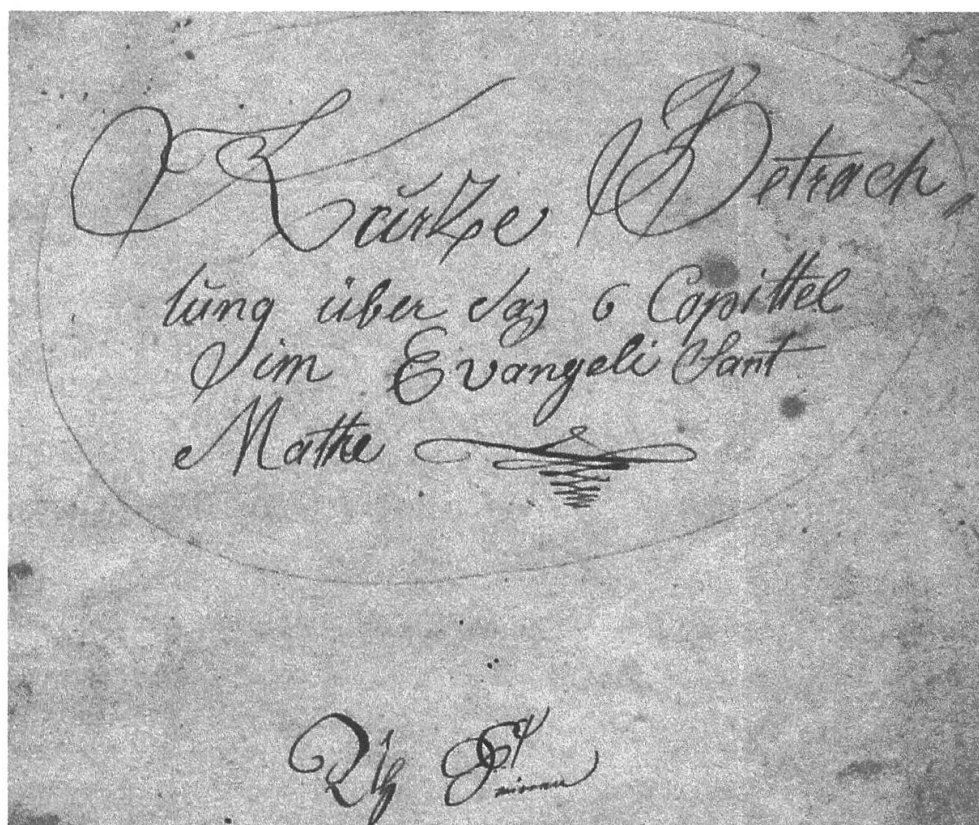 Kurtze Betrach
tung über daz 6 Capittel
im Evangeli Sant
Mathe